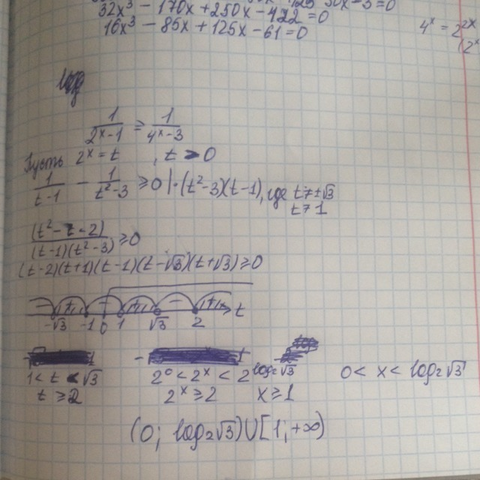 32x³ - 170x + 250x - 122 = 0
16x³ - 85x + 125x - 61 = 0
4ˣ = 2²ˣ
1/(2ˣ-1) ≥ 1/(4ˣ-3)
Пусть 2ˣ = t , t > 0
1/(t-1) - 1/(t²-3) ≥ 0 | · (t²-3)(t-1), где t ≠ ±√3
t ≠ 1
(t²-t-2)/((t-1)(t²-3)) ≥ 0
(t-2)(t+1)(t-1)(t-√3)(t+√3) ≥ 0
- + - + - + t
-√3 -1 0 1 √3 2
1 < t < √3 2⁰ < 2ˣ < 2^log₂√3 0 < x < log₂√3
t ≥ 2 2ˣ ≥ 2 x ≥ 1
(0; log₂√3) ∪ [1; +∞)